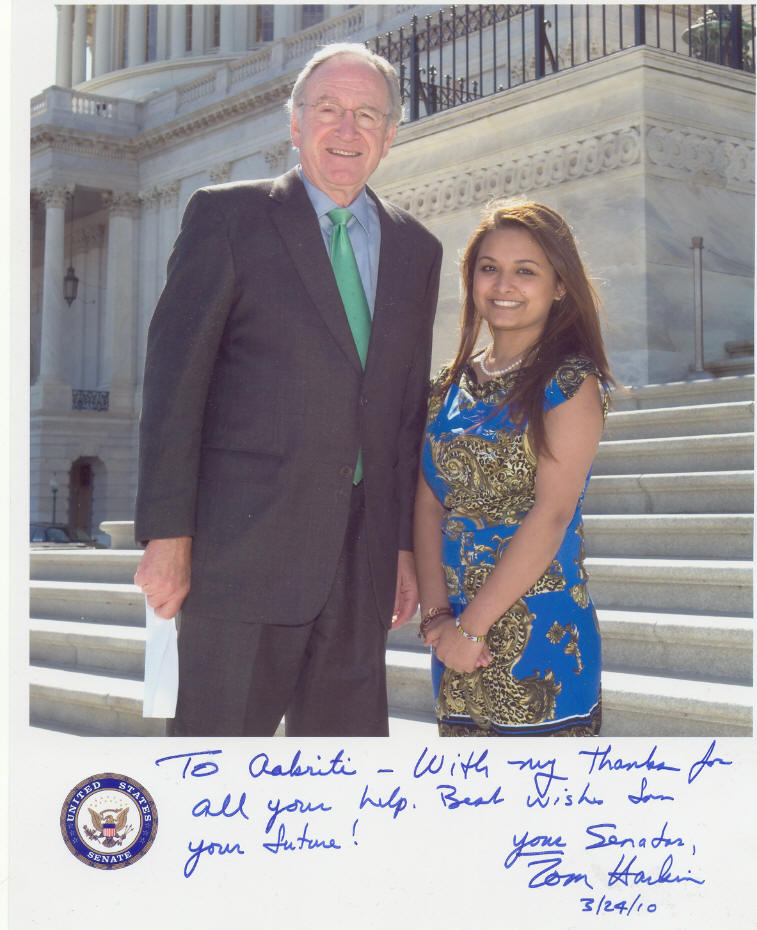 To Aakriti – With my thanks for
all your help. Best wishes for
your future!
your Senator,
Tom Harkin
3/24/10
UNITED STATES
SENATE